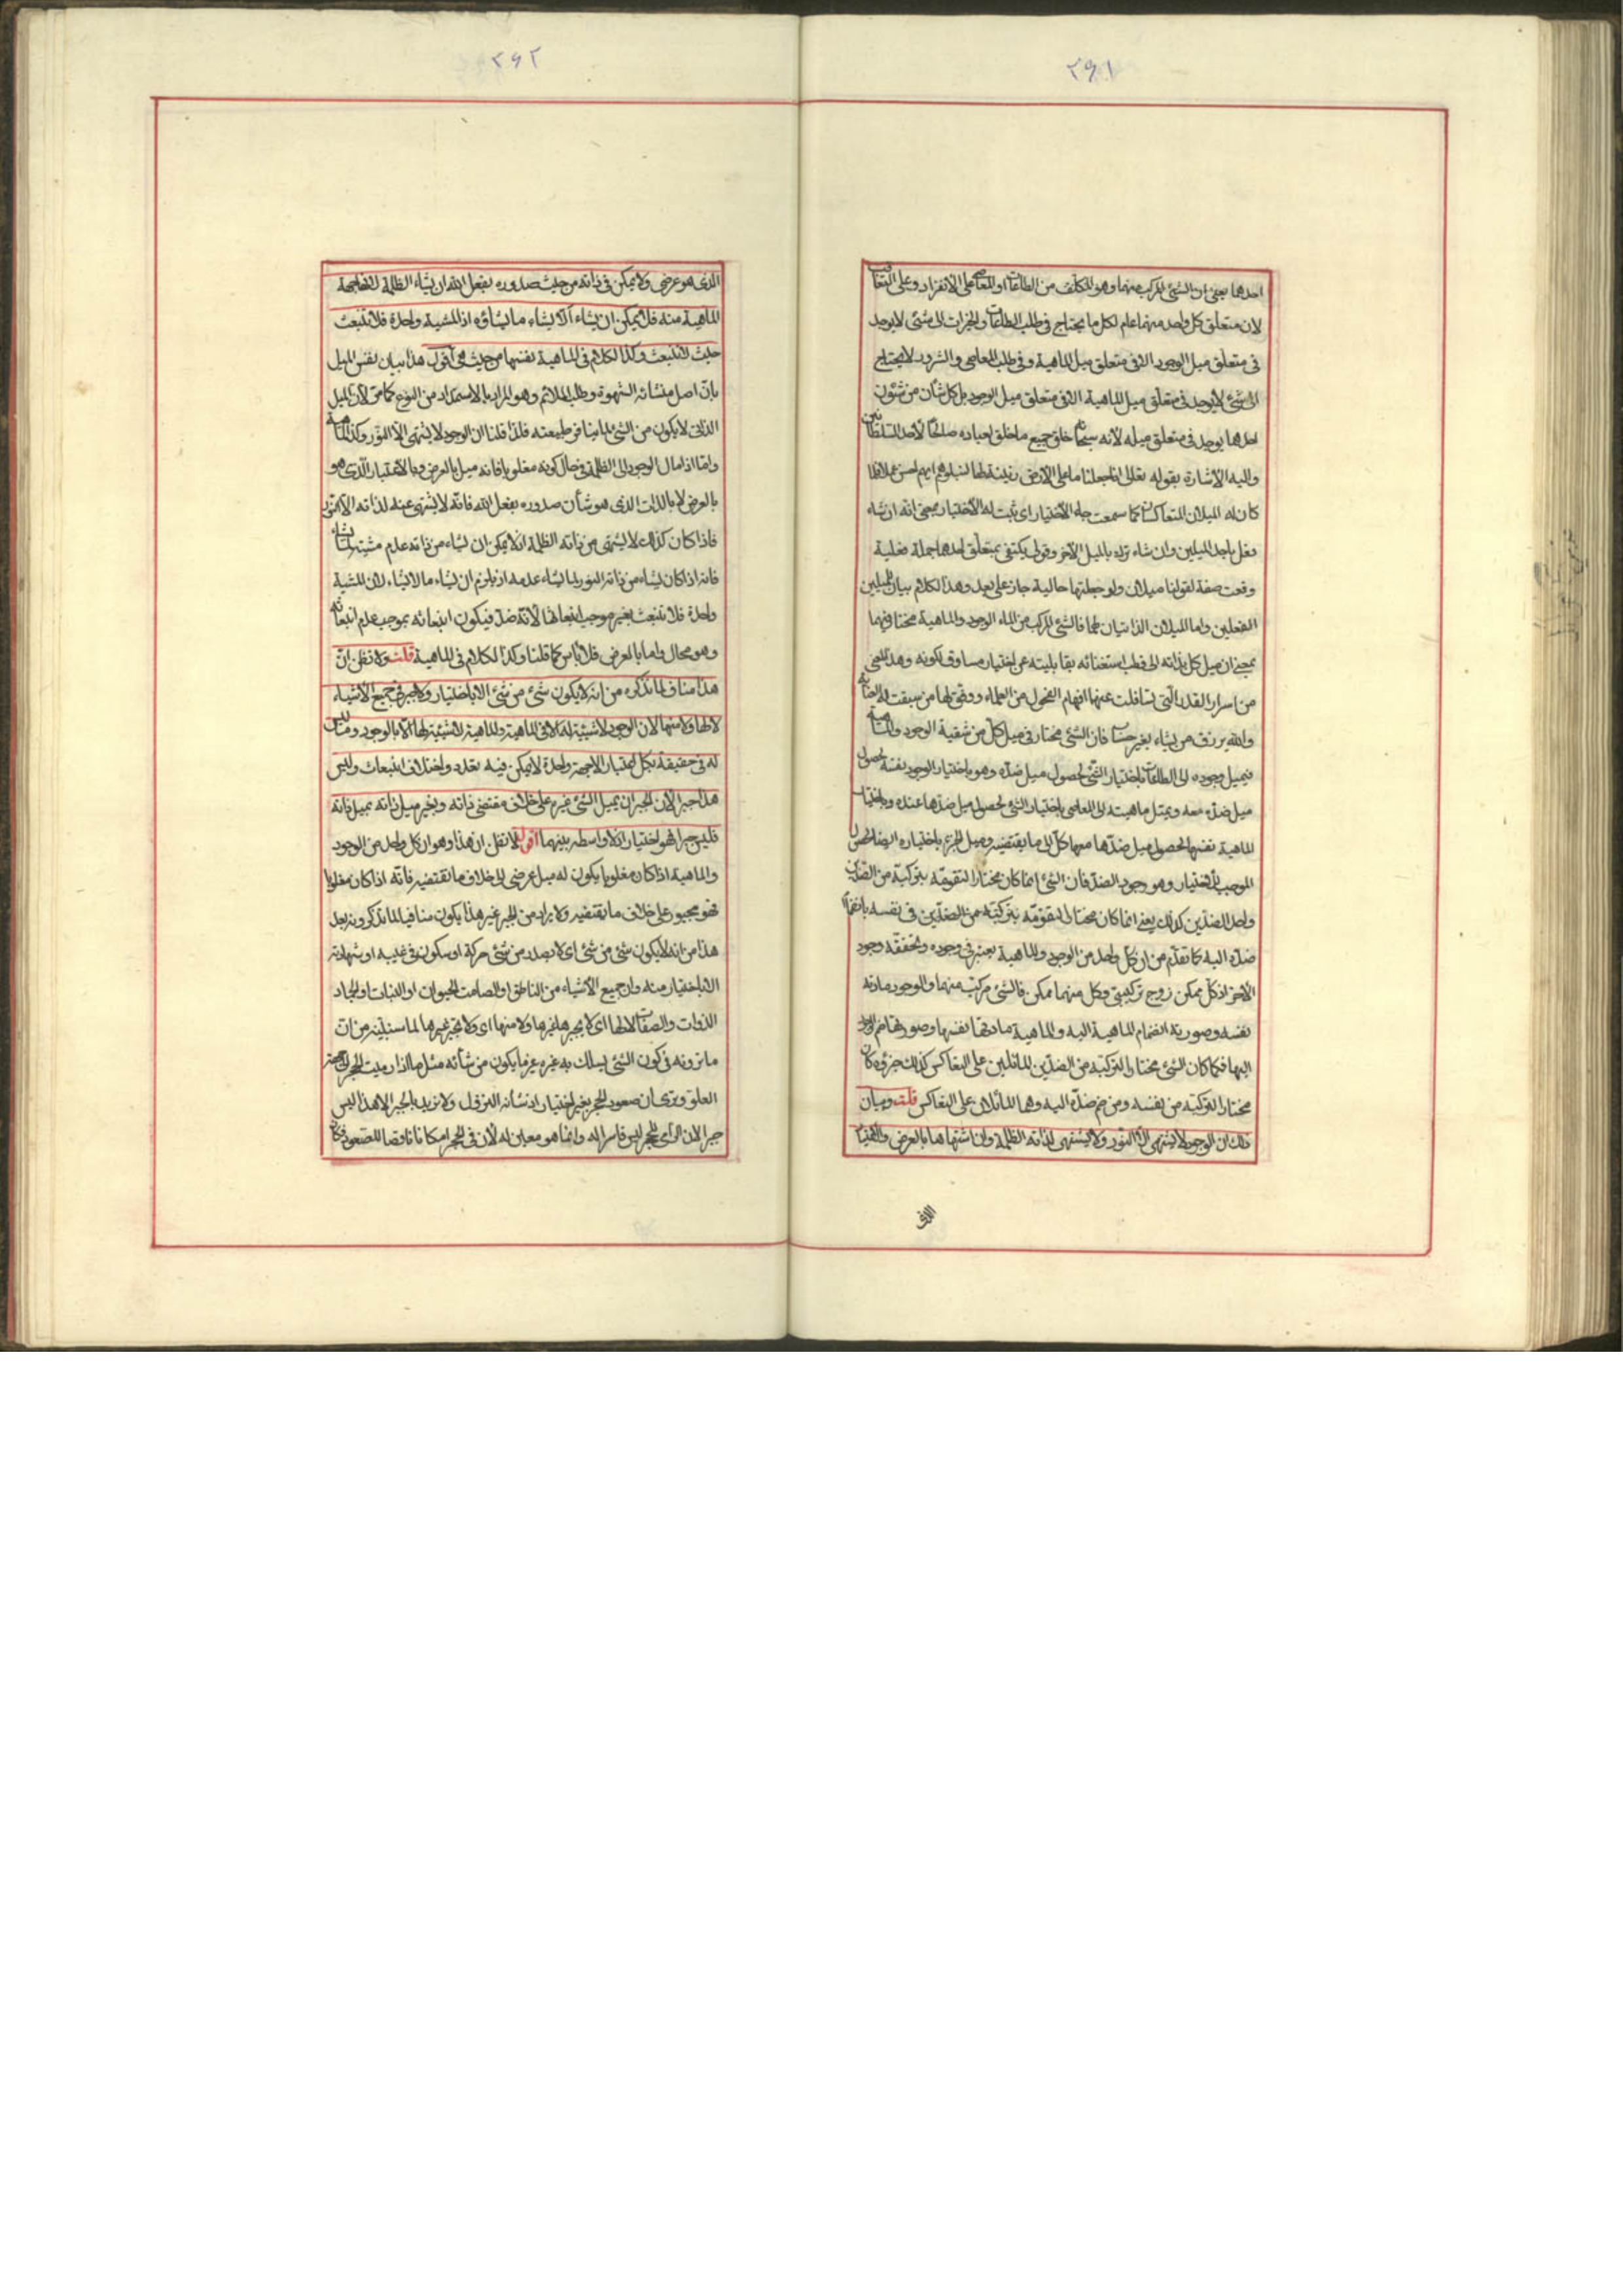 ٢۶١
احدهما يعنى ان الشئ المركب منهما وهو المكلف من الطاعات او المعاصى على الانفراد وعلى التعاقب
لان متعلق كل واحد منهما عام لكل ما يحتاج فى طلب الطاعات والخيرات الى شئ لا يوجد
فى متعلق ميل الوجود الا فى متعلق ميل الماهية وفى طلب المعاصى والشرور لا يحتاج
الى شئ لا يوجد فى متعلق ميل الماهية الا فى متعلق ميل الوجود بل كل شأن من شئون
احدهما يوجد فى متعلق ميله لأنه سبحانه خلق جميع ما خلق لعباده صالحا لأحد السلطانين
واليه الاشارة بقوله تعالى انا جعلنا ما على الارض زينة لها لنبلوهم ايهم احسن عملا فلما
كان له الميلان المتعاكسان كما سمعت جاء الأختيار اى ثبت له الأختيار بمعنى انه ان شاء
فعل باحد الميلين وان شاء ترك بالميل الآخر وقولى يكتفى بمتعلق احدهما جملة فعلية
وقعت صفة لقولنا ميلان ولو جعلتها حالية جاز على بعد وهذا الكلام بيان للميلين
الفعلين واما الميلان الذاتيان لهما فالشئ المركب من الماء الوجود والماهية مختار فيهما
بمعنى ان ميل كل بذاته الى قطب استغنائه بقابليته عن اختيار مساوق لكونه وهذا المعنى
من اسرار القدر التى تسافلت عنها افهام الفحول من العلماء ووفق لها من سبقت له العناية
والله يرزق من يشاء بغير حساب فان الشئ مختار فى ميل كل من شقيه الوجود والماهية
فيميل وجوده الى الطاعات باختيار الشئ لحصول ميل ضده وهو باختيار الوجود نفسه لحصول
ميل ضده معه ويميل ماهيته الى المعاصى باختيار الشئ لحصول ميل ضدها عنده وباختيار
الماهية نفسها لحصول ميل ضدها معها كل الى ما يقتضيه وميل الجزء باختياره ايضا لحصول
الموجب للأختيار وهو وجود الضد فان الشئ انما كان مختارا لتقومه بتركيبه من الضدين
واحد الضدين كذلك يعنى انما كان مختارا لتقومه بتركيبه من الضدين فى نفسه بانضمام
ضده اليه كما تقدم من ان كل واحد من الوجود والماهية يعتبر فى وجوده وتحققه وجود
الآخر اذ كل ممكن زوج تركيبى وكل منهما ممكن فالشئ مركب منهما والوجود مادته
نفسه وصورته انضمام الماهية اليه والماهية مادتها نفسها وصورتها ضم الوجود
اليها فكما كان الشئ مختارا لتركبه من الضدين المائلين على التعاكس كذلك جزؤه كان
مختارا لتركبه من نفسه ومن ضم ضده اليه وهما المائلان على التعاكس قلت وبيان
ذلك ان الوجود لا يشتهى الا النور ولا يشتهى لذاته الظلمة وان اشتهاها بالعرض والاعتبار
الذى
٢۶٢
الذى هو عرضى ولا يمكن فى ذاته من حيث صدوره بفعل الله ان يشاء الظلمة لانها جهة
الماهية منه فلا يمكن ان يشاء الا يشاء ما يشاؤه اذ المشية واحدة فلا تنبعث
حيث لا تنبعث وكذا الكلام فى الماهية نفسها من حيث هى اقول هذا بيان نفس الميل
بان اصل منشائه الشهوة وطلب الملائم وهو المراد بالاستمداد من النوع كما مر لان الميل
الذاتى لا يكون من الشئ لما ينافى طبيعته فلذا قلنا ان الوجود لا يشتهى الا النور وكذا الماهية
واما اذا مال الوجود الى الظلمة فى حال كونه مغلوبا فانه ميل بالعرض وبالاعتبار الذى هو
بالعرض لا بالذات الذى هو شأن صدوره بفعل الله فانه لا يشتهى عنه لذاته الا النور
فاذا كان كذلك لا يشتهى من ذاته الظلمة اذ لا يمكن ان يشاء من ذاته عدم مشيته لما شاء
فانه اذا كان يشاء من ذاته النور لما يشاء عدمه اذ يلزم ان يشاء ما لا يشاء لان المشية
واحدة فلا تنبعث بغير موجب انبعاثها لأنه ضد فيكون انبعاثه بموجب عدم انبعاثه
وهو محال واما بالعرض فلا بأس كما قلنا وكذا الكلام فى الماهية قلت ولا تقل ان
هذا مناف لما تذكره من انه لا يكون شئ من شئ الا باختيار ولا جبر فى جميع الاشياء
لا لها ولا منها لان الوجود لا شيئية له الا فى الماهية والماهية لا شيئية لها الا بالوجود وما ليس
له فى حقيقة بكل اعتبار الا جهة واحدة لا يمكن فيه تعدد واختلاف انبعاث وليس
هذا جبرا لأن الجبر ان يميل الشئ غيره على خلاف مقتضى ذاته وبغير ميل ذاته بميل ذاته
فليس جبرا فهو اختيار اذ لا واسطة بينهما اقول لا تقل ان هذا وهو ان كل واحد من الوجود
والماهية اذا كان مغلوبا يكون له ميل عرضى الى خلاف ما تقتضيه فانه اذا كان مغلوبا
فهو مجبور على خلاف ما تقتضيه ولا يراد من الجبر غير هذا يكون منافيا لما تذكرونه بعد
هذا من انه لا يكون شئ من شئ اى لا يصدر من شئ حركة او سكون فى غيبه او شهادته
الا باختيار منه وان جميع الأشياء من الناطق او الصامت الحيوان او النبات والجماد
الذوات والصفات لا لها اى لا يجبرها غيرها ولا منها اى ولا تجبر غيرها لما سنبينه من ان
ما ترونه فى كون الشئ يسلك به غيره غير ما يكون من شأنه مثل ما اذا رميت الحجر الى جهة
العلو وترى ان صعود الحجر بغير اختيار اذ شأنه النزول ولا نريد بالجبر الا هذا ليس
جبرا لان الرامى للحجر ليس قاسرا له وانما هو معين له لأن فى الحجر امكانا ناقصا للصعود فكان